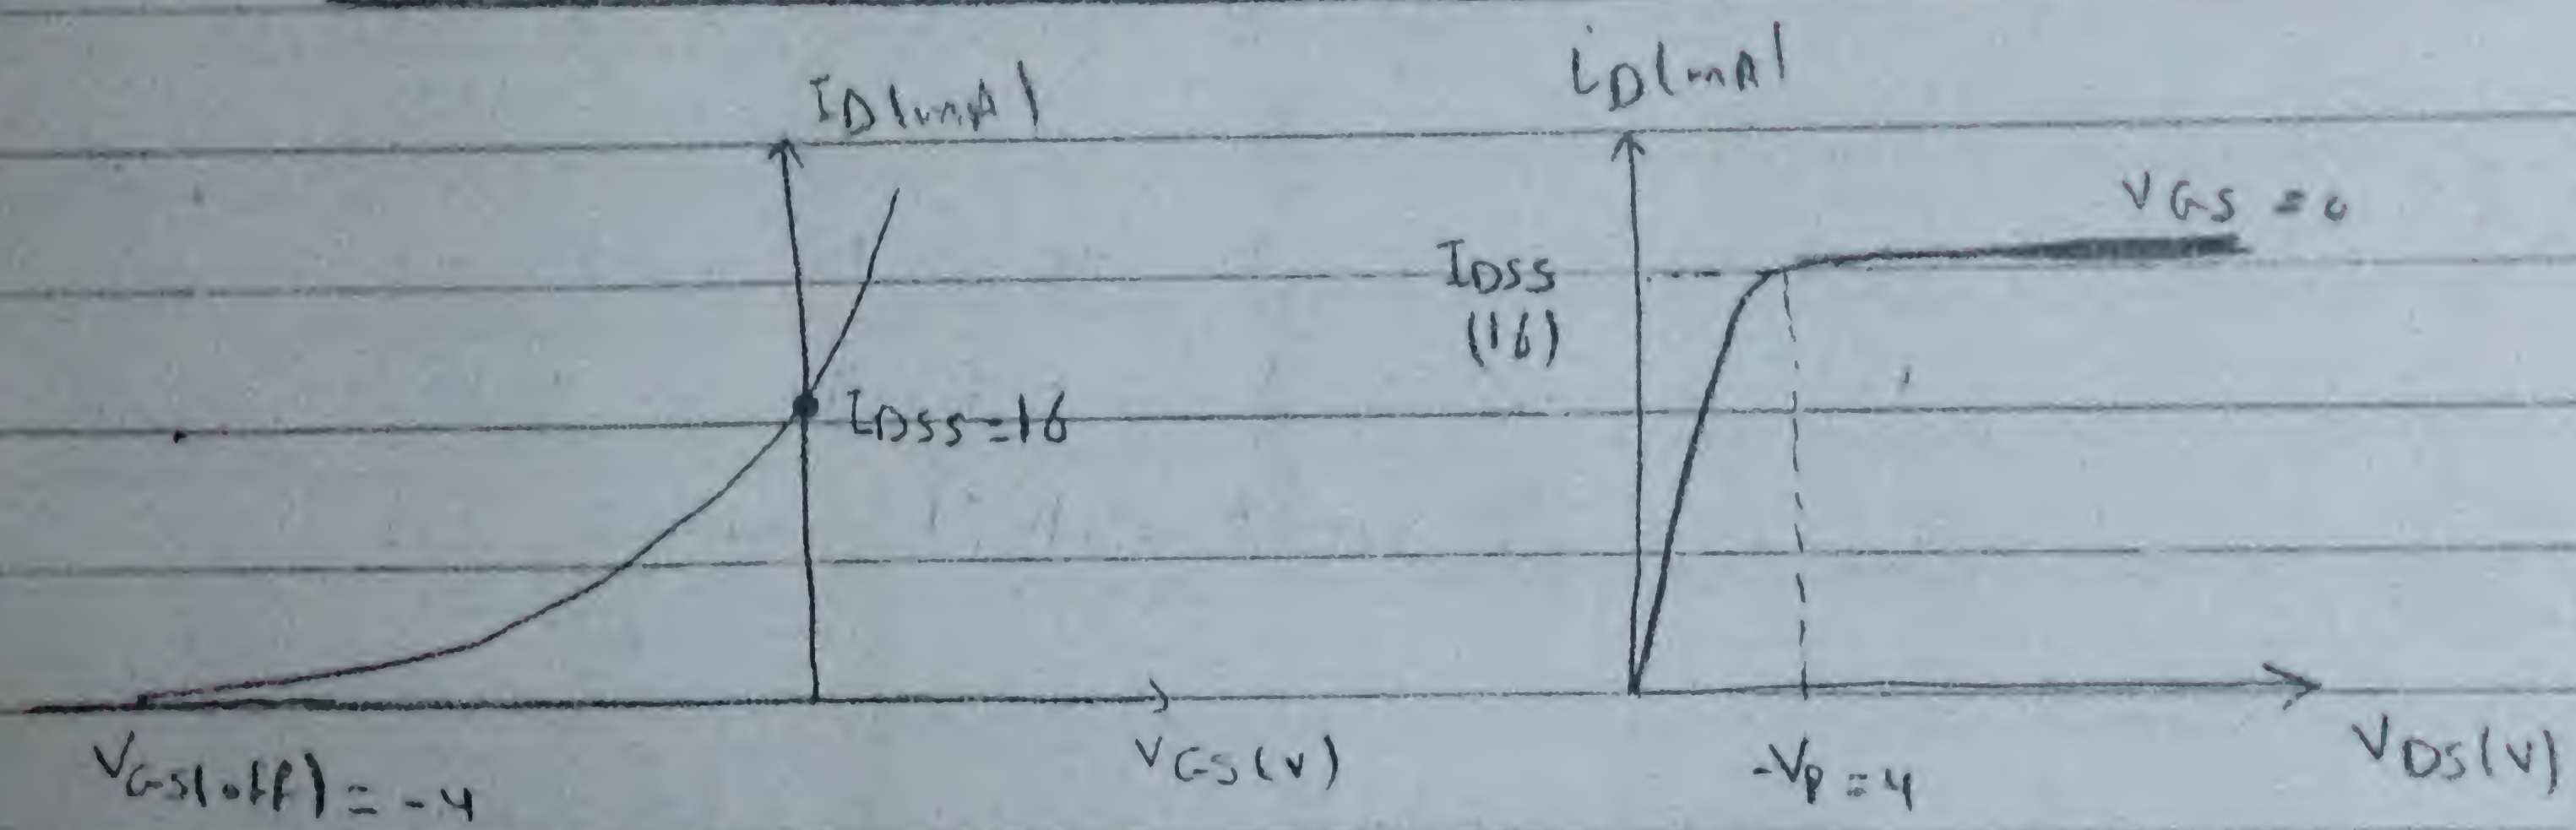 ID(mA)
IDSS=16
VGS(off) = -4
VGS(V)
iD(mA)
VGS = 0
IDSS
(16)
-Vp = 4
VDS(V)